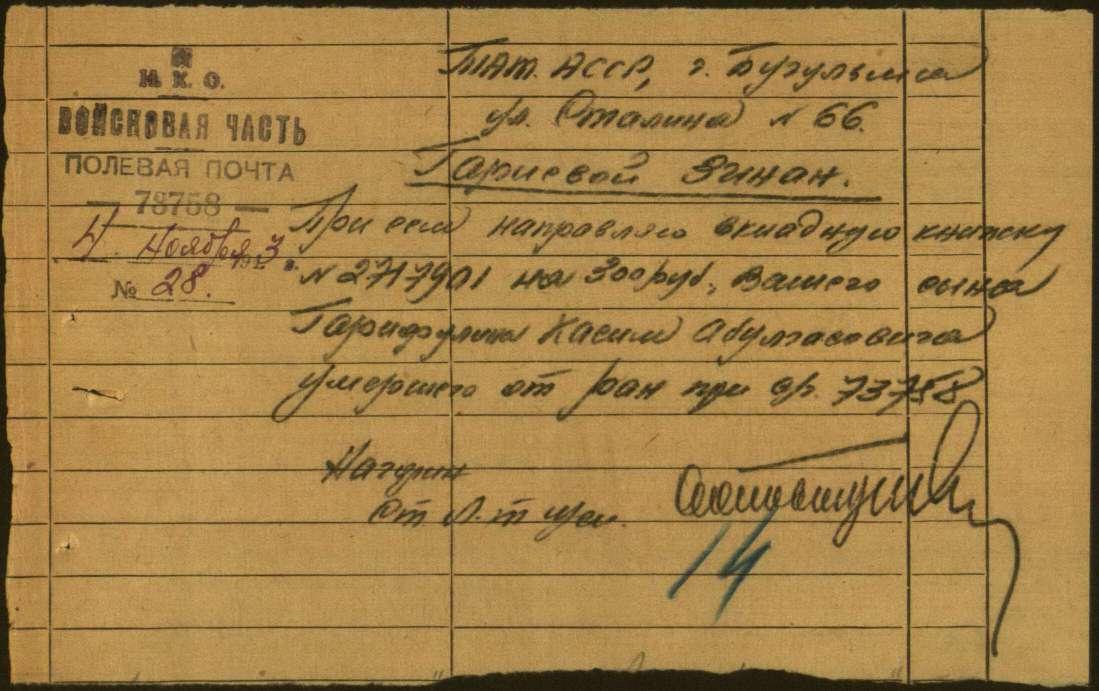 Н. К. О.
ВОЙСКОВАЯ ЧАСТЬ
ПОЛЕВАЯ ПОЧТА
— 73758 —
4. Ноября 1943 г.
№ 28.
Тат. АССР, г. Бугульма
ул. Сталина № 66.
Гариевой Зинан.
При сем направляю вкладную книжку
№ 2717901 на 300 руб., Вашего сына
Гарифулина Касим Абулгасовича
умершего от ран при
ст. л-т
14